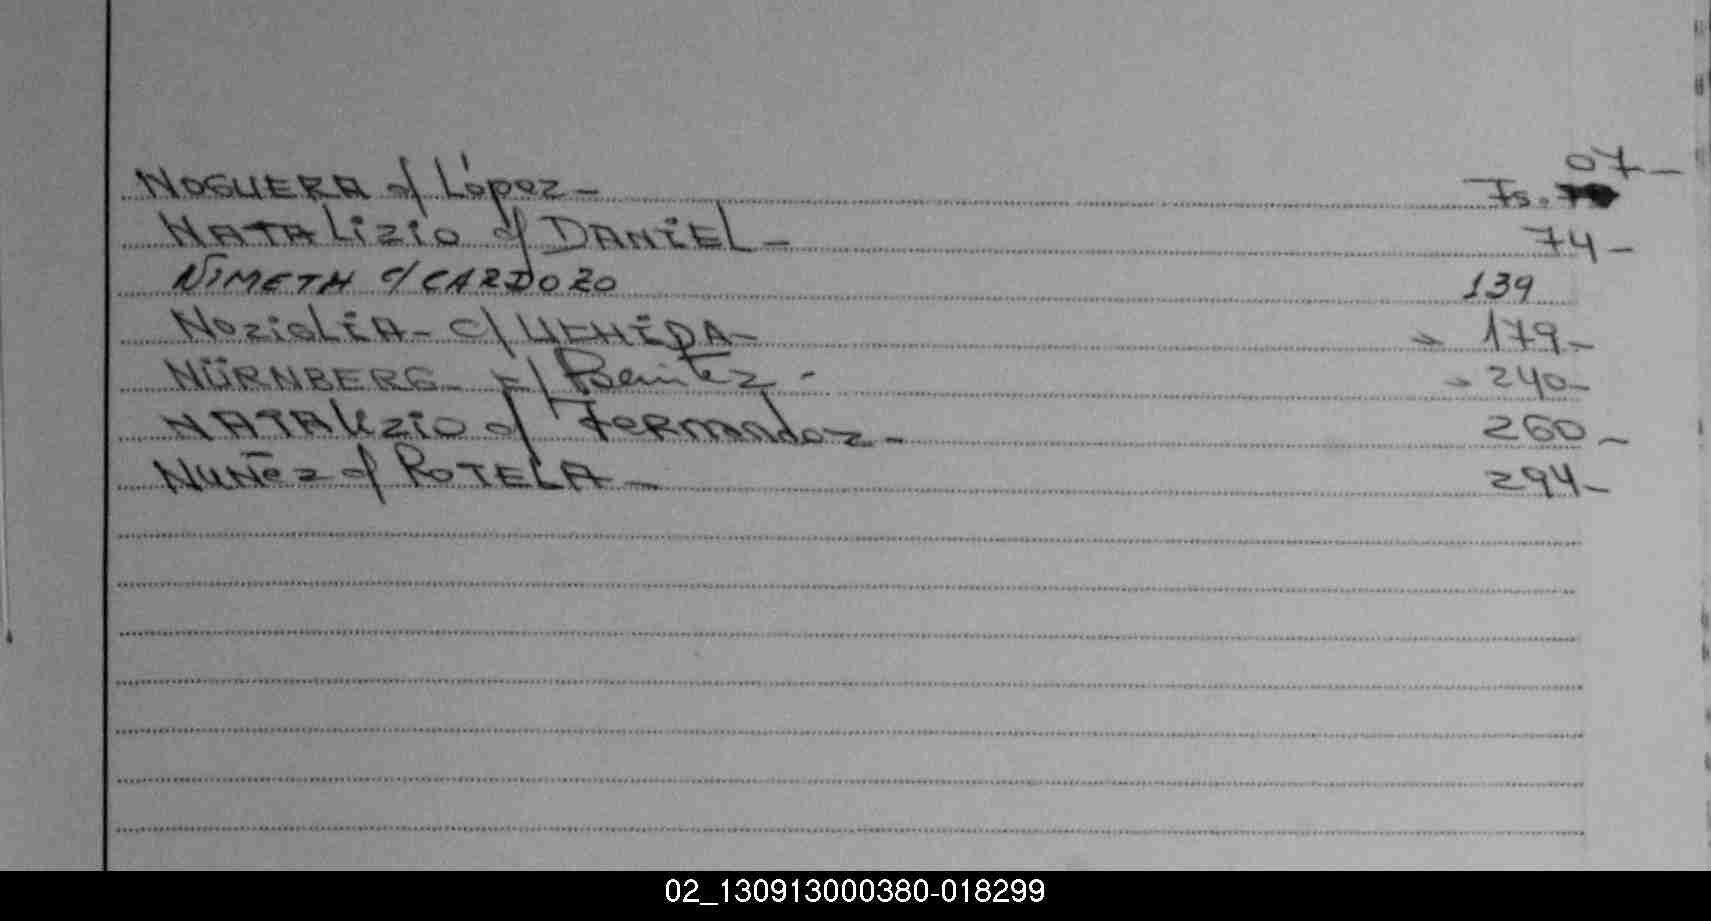 NOGUERA c/ López - Fs. 07-
NATALIZIO c/ DANIEL - 74-
NIMETH c/ CARDOZO 139
NOZIGLIA - c/ UEHIDA - 179-
NÜRNBERG - c/ Benitez - 240-
NATALIZIO c/ Fernandez - 260-
NUÑEZ c/ ROTELA - 294-
02_130913000380-018299